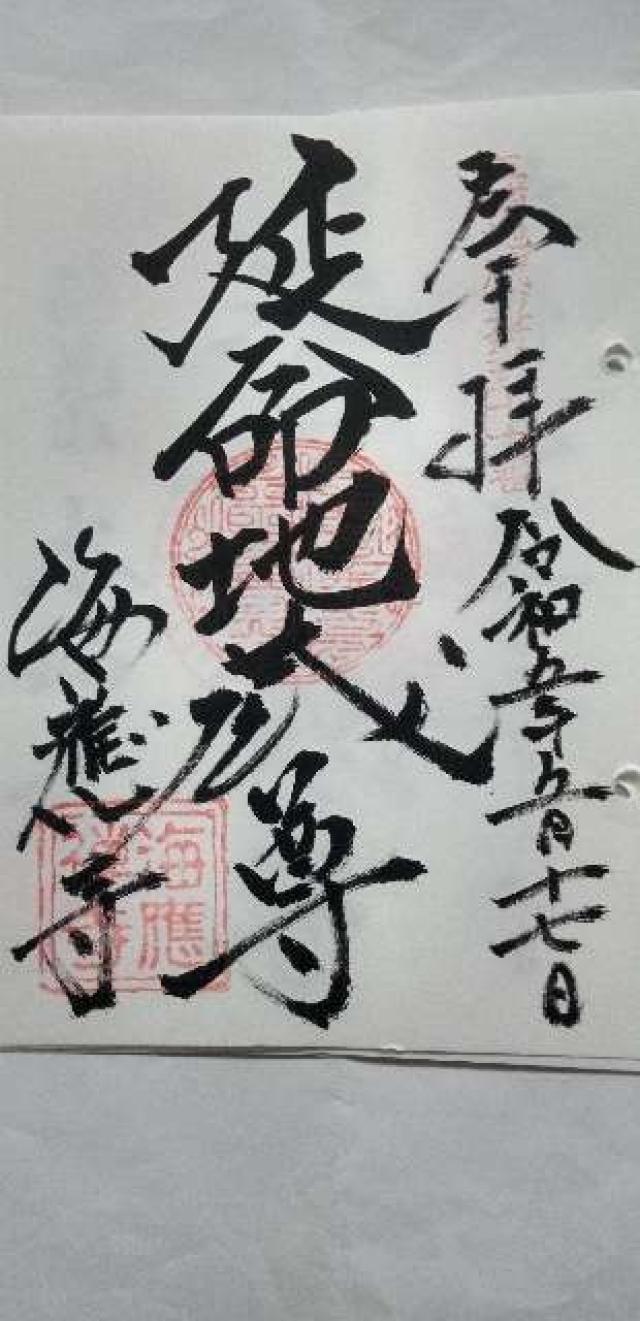 奉拝
令和五年五月十七日
延命地蔵尊
海應寺
海應
禅寺